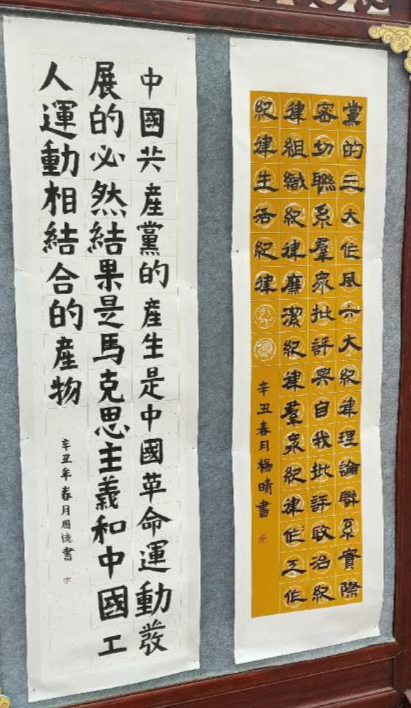 黨的三大作風六大紀律理論聯系實際
密切聯系羣衆批評與自我批評政治紀
律組織紀律廉潔紀律羣衆紀律作工作
紀律生活紀律
辛丑春月楊晴書
中國共產黨的產生是中國革命運動發
展的必然結果是馬克思主義和中國工
人運動相結合的產物
辛丑年春月周書